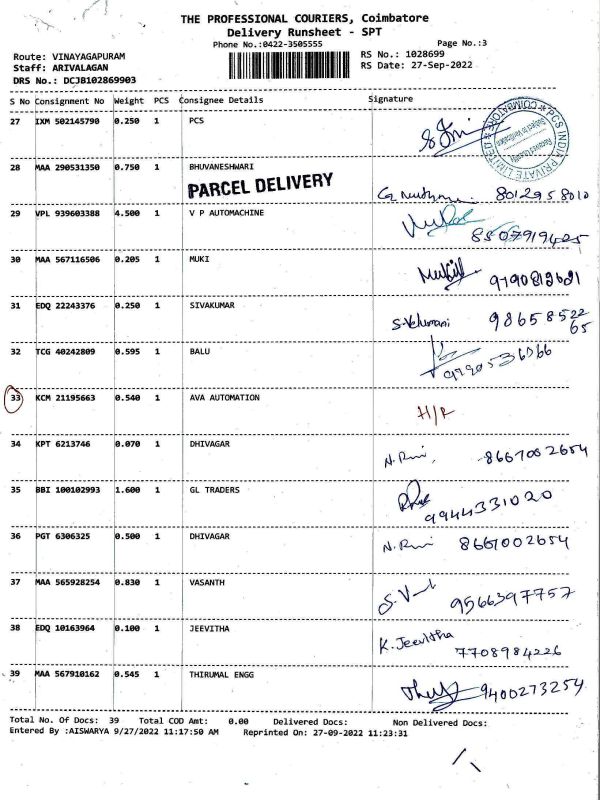 THE PROFESSIONAL COURIERS, Coimbatore
Delivery Runsheet - SPT
Phone No.:0422-3505555 Page No.:3
Route: VINAYAGAPURAM RS No.: 1028699
Staff: ARIVALAGAN RS Date: 27-Sep-2022
DRS No.: DCJB102869903
S No Consignment No Weight PCS Consignee Details Signature
27 IXM 502145790 0.250 1 PCS
PCS INDIA PRIVATE LIMITED COIMBATORE
28 MAA 290531350 0.750 1 BHUVANESHWARI
PARCEL DELIVERY 8012958010
29 VPL 939603388 4.500 1 V P AUTOMACHINE
8507919425
30 MAA 567116506 0.205 1 MUKI
31 EDQ 22243376 0.250 1 SIVAKUMAR
S.Velumani 98658522
65
32 TCG 40242809 0.595 1 BALU
33 KCM 21195663 0.540 1 AVA AUTOMATION
H/R
34 KPT 6213746 0.070 1 DHIVAGAR
8667002654
35 BBI 100102993 1.600 1 GL TRADERS
9944331020
36 PGT 6306325 0.500 1 DHIVAGAR
8667002654
37 MAA 565928254 0.830 1 VASANTH
9566397757
38 EDQ 10163964 0.100 1 JEEVITHA
K.Jeevitha 7708984226
39 MAA 567910162 0.545 1 THIRUMAL ENGG
9400273254
Total No. Of Docs: 39 Total COD Amt: 0.00 Delivered Docs: Non Delivered Docs:
Entered By :AISWARYA 9/27/2022 11:17:50 AM Reprinted On: 27-09-2022 11:23:31